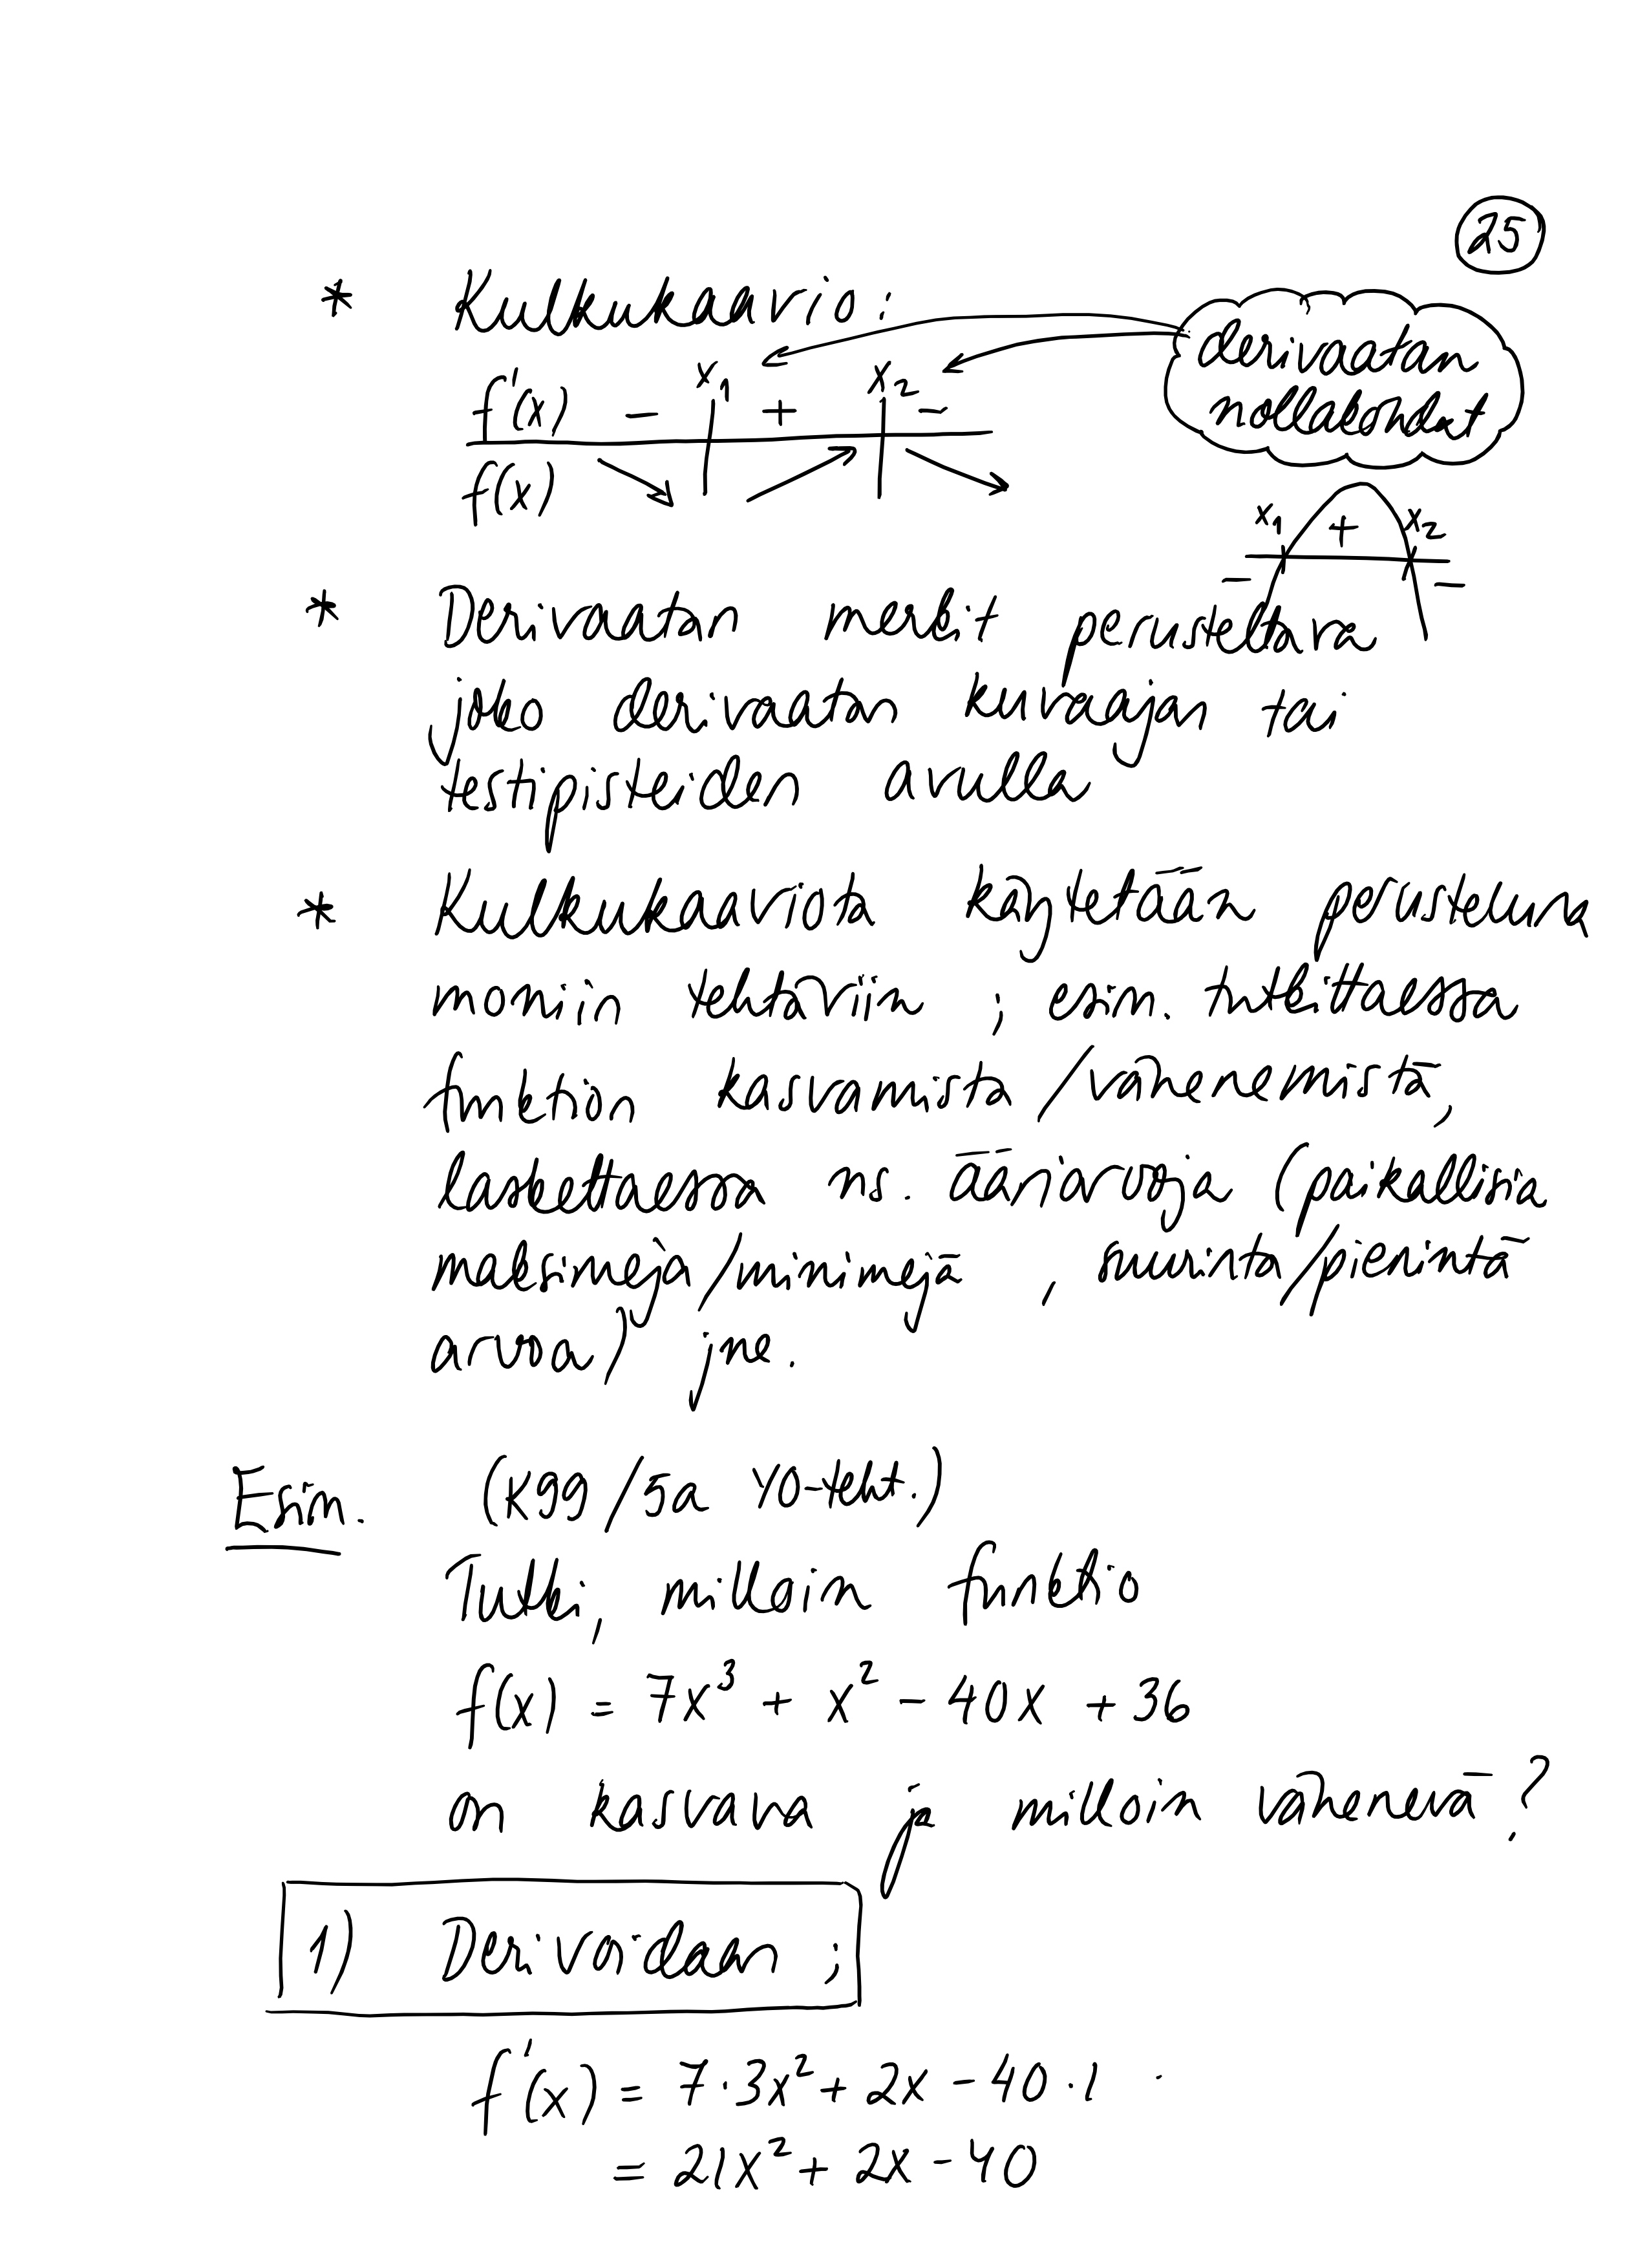 25
* Kulkukaavio:
derivaatan
nollakohdat
f'(x) − x₁ + x₂ −
f(x)
x₁ + x₂
− −
* Derivaatan merkit perusteltava
joko derivaatan kuvaajan tai
testipisteiden avulla
* Kulkukaaviota käytetään perusteluna
moniin tehtäviin ; esim. tutkittaessa
funktion kasvamista/vähenemistä,
laskettaessa ns. ääriarvoja (paikallisia
maksimeja/minimejä , suurinta/pienintä
arvoa) jne.
Esim. (K99/5a YO-teht.)
Tutki, milloin funktio
f(x) = 7x³ + x² − 40x + 36
on kasvava ja milloin vähenevä?
1) Derivoidaan ;
f'(x) = 7·3x² + 2x − 40·1
= 21x² + 2x − 40